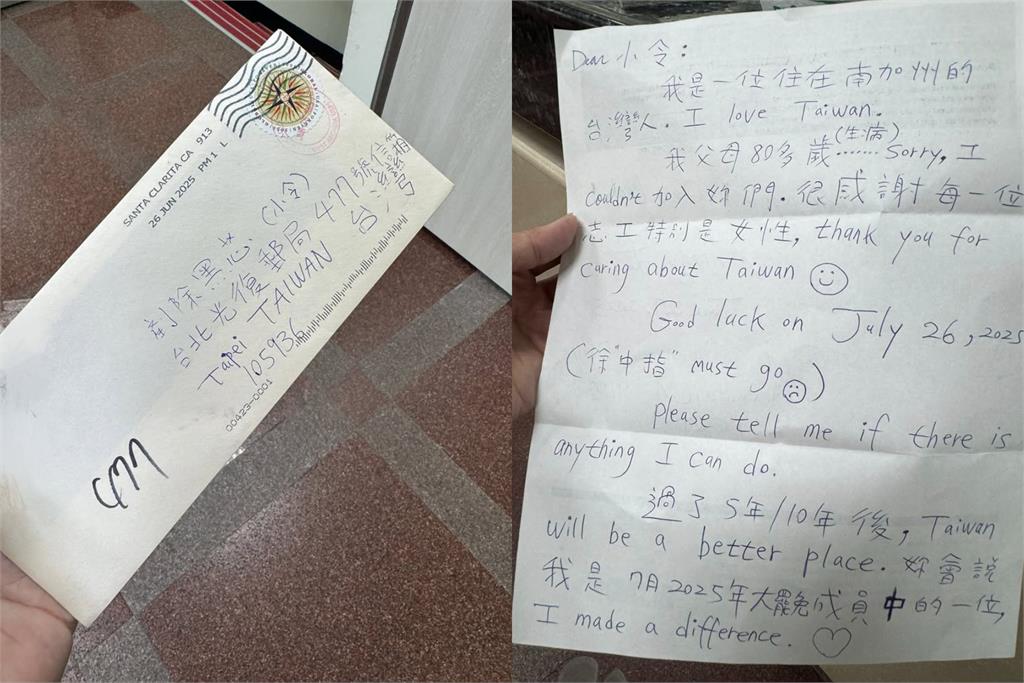 SANTA CLARITA CA 913
26 JUN 2025 PM 1 L
剷除黑心 (小令)
台北光復郵局 477號信箱
Taipei TAIWAN 台灣
105936
00423-0001
477
Dear 小令:
我是一位住在南加州的
台灣人. I love Taiwan.
我父母80多歲(生病)……Sorry, I
couldn't 加入妳們. 很感謝每一位
志工特別是女性, thank you for
caring about Taiwan ☺
Good luck on July 26, 2025
(徐"中指" must go ☹)
please tell me if there is
anything I can do.
過了5年/10年後, Taiwan
will be a better place. 妳會說
我是 7月2025年大罷免成員中的一位,
I made a difference. ♡